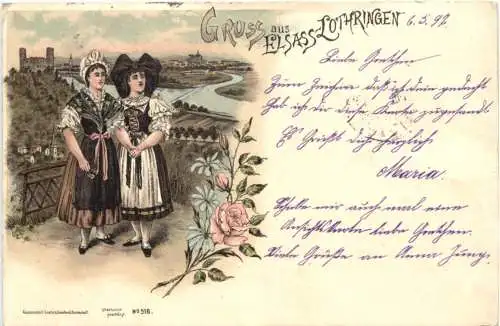 Gruss aus
Elsass-Lothringen
6.5.99.
Liebe Gretchen.
Zum Zeichen daß ich Dein gedacht
hab ich dir diese Karte zugesandt
Es Grüßt dich herzlich
Maria.
Schicke mir auch mal eine
Ansichtskarte liebe Gretchen.
Viele Grüße an Anna Jung.
No 516.